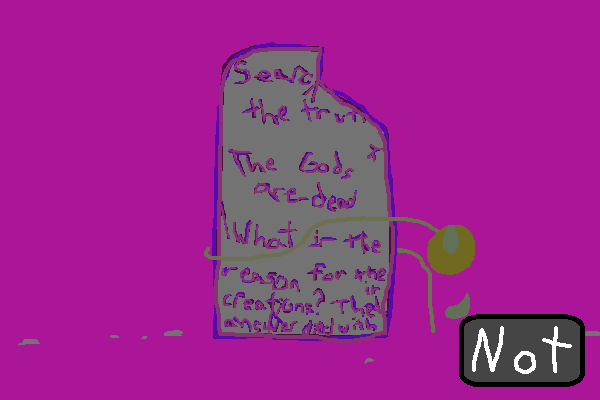 Searc
the trut
The Gods
are dead
What is the
reason for the
ir
creations? The
answer died with
Not